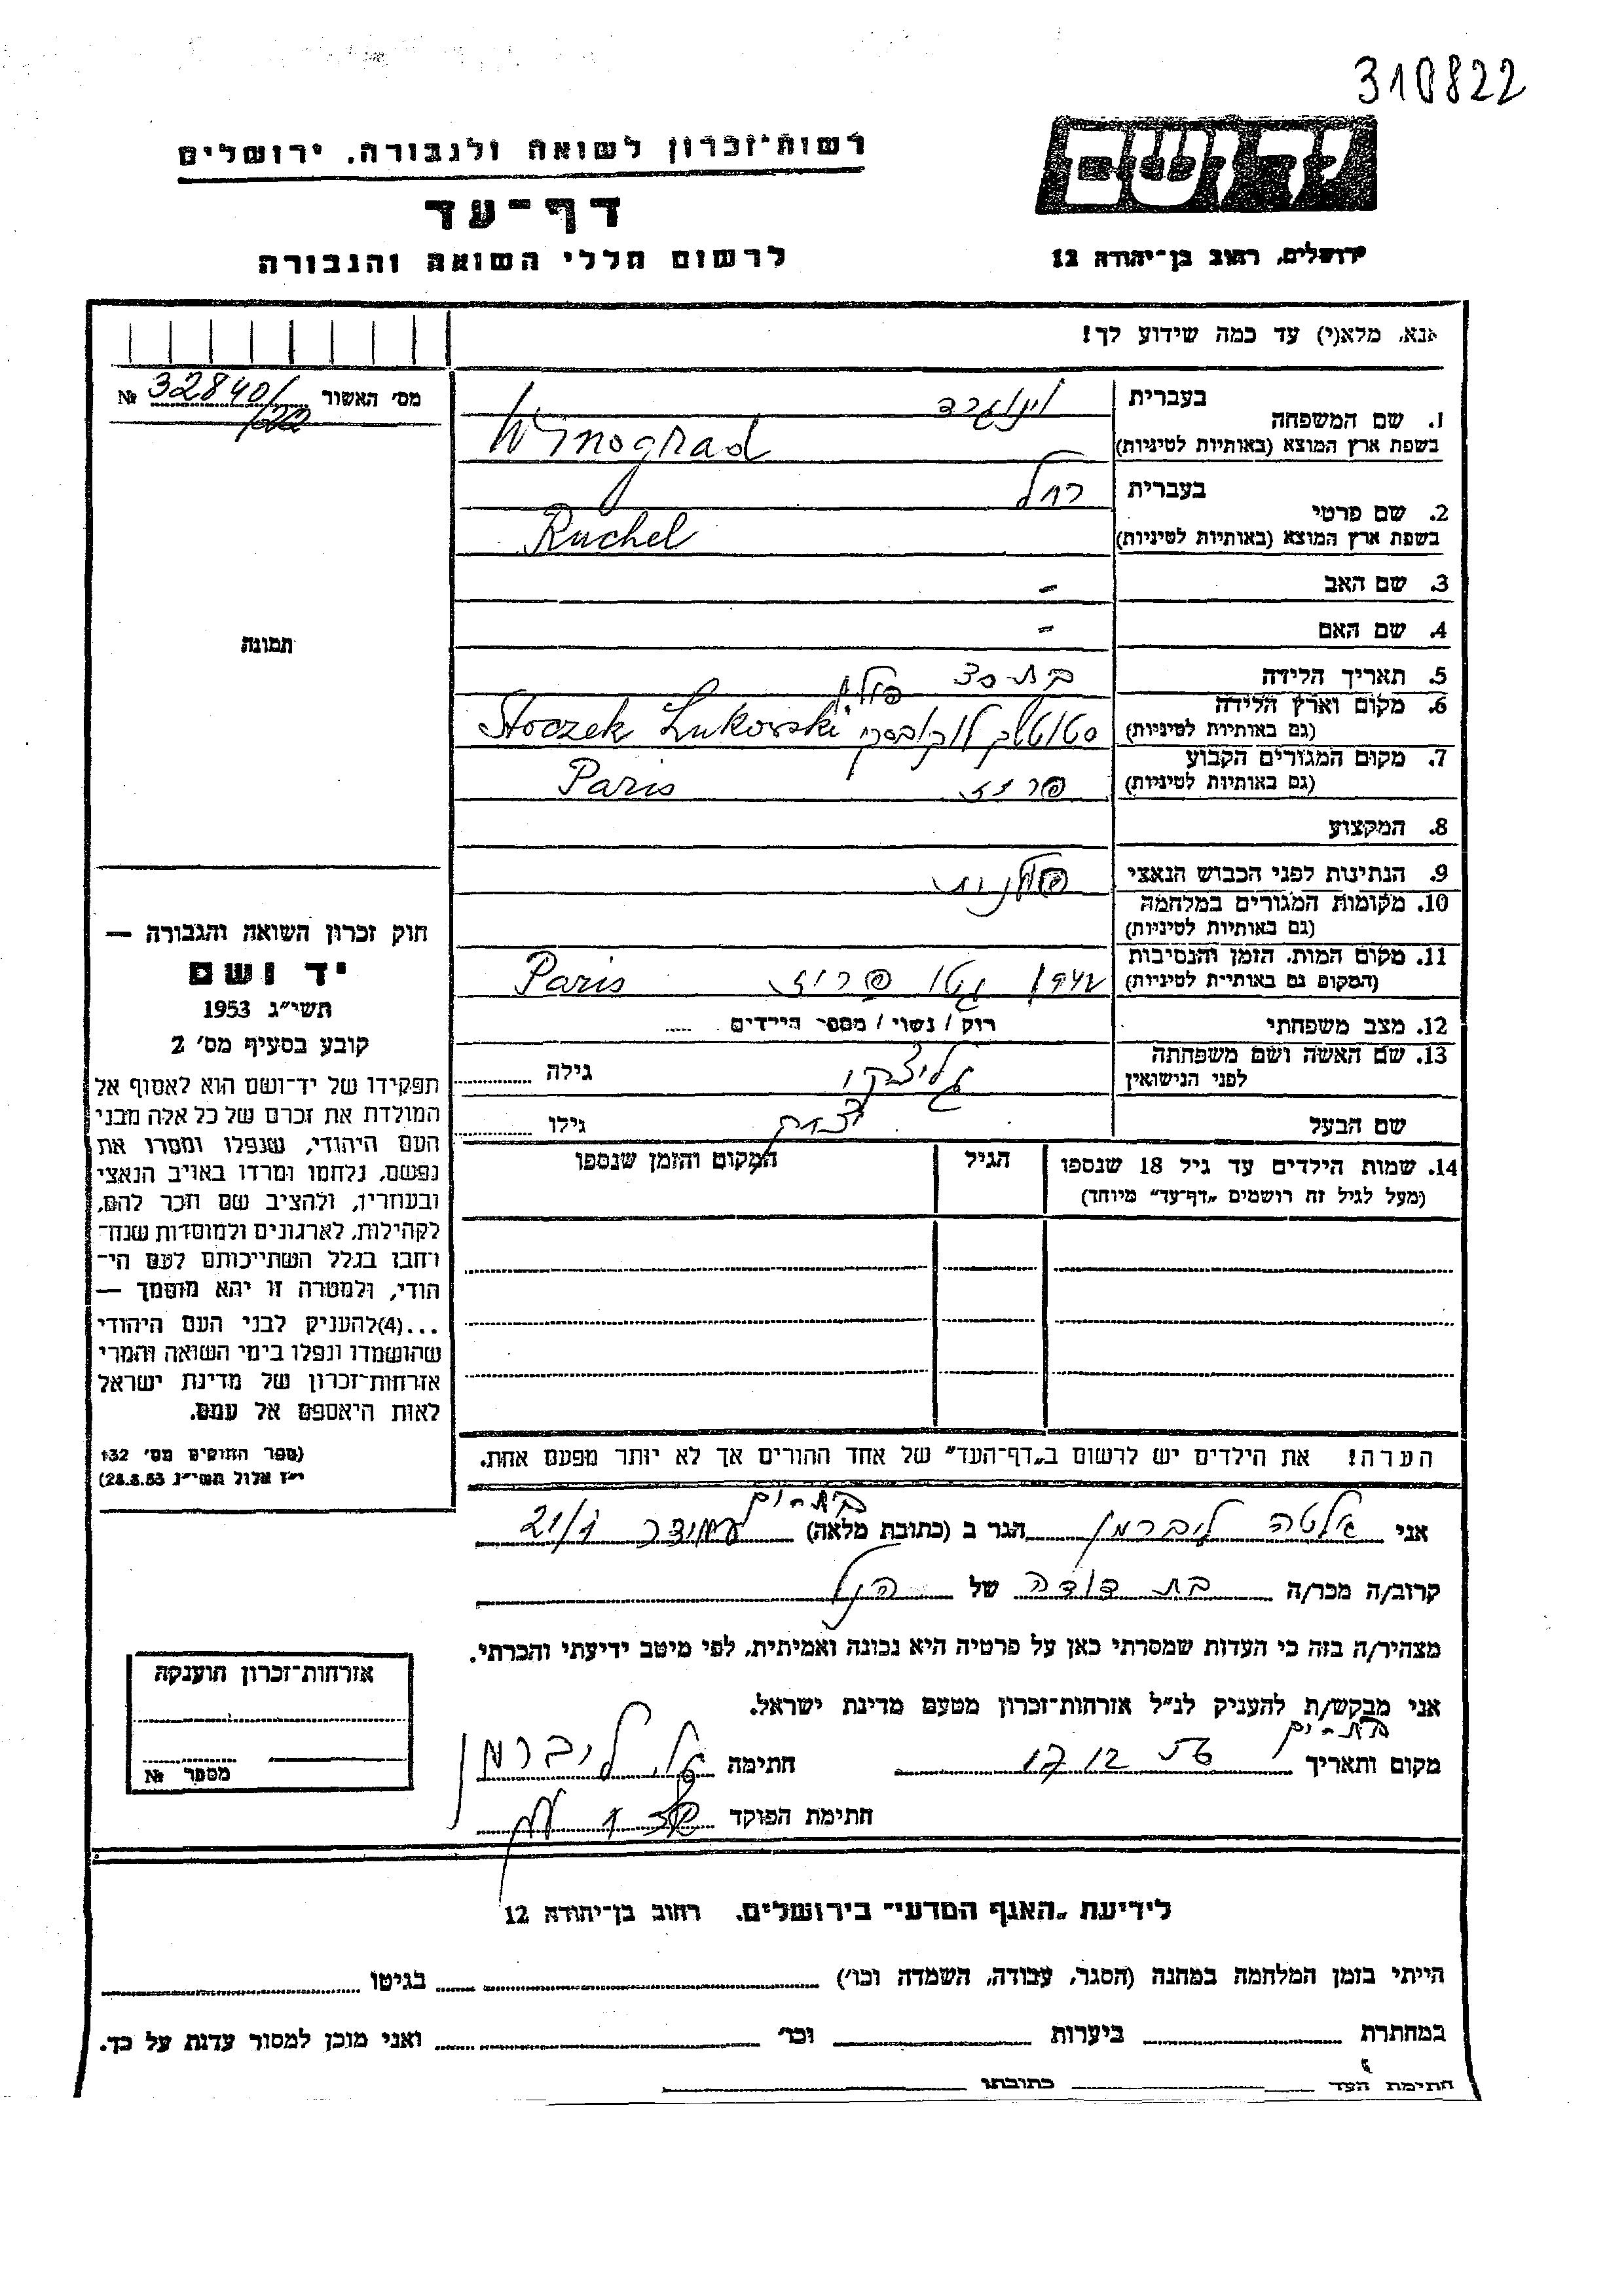 310822
יד ושם
ירושלים, רחוב בן־יהודה 12
רשות־זכרון לשואה ולגבורה, ירושלים
דף־עד
לרשום חללי השואה והגבורה
אנא, מלא(י) עד כמה שידוע לך!
מס׳ האשור 32840/ №
1. שם המשפחה בעברית וינוגרד
בשפת ארץ המוצא (באותיות לטיניות) Winograd
2. שם פרטי בעברית רחל
בשפת ארץ המוצא (באותיות לטיניות) Ruchel
3. שם האב -
4. שם האם -
תמונה
5. תאריך הלידה בת
6. מקום וארץ הלידה פולין
(גם באותיות לטיניות) Stoczek Lukowski
7. מקום המגורים הקבוע
(גם באותיות לטיניות) פריז Paris
8. המקצוע
9. הנתינות לפני הכבוש הנאצי פולנית
10. מקומות המגורים במלחמה
(גם באותיות לטיניות)
11. מקום המות, הזמן והנסיבות
(המקום גם באותיות לטיניות) גטו פריז Paris
12. מצב משפחתי רווק / נשוי / מספר הילדים
13. שם האשה ושם משפחתה
לפני הנישואין גילה
שם הבעל יצחק גילו
14. שמות הילדים עד גיל 18 שנספו הגיל המקום והזמן שנספו
(מעל לגיל זה רושמים „דף־עד״ מיוחד)
הערה! את הילדים יש לרשום ב„דף־העד״ של אחד ההורים אך לא יותר מפעם אחת.
חוק זכרון השואה והגבורה —
יד ושם
תשי״ג 1953
קובע בסעיף מס׳ 2
תפקידו של יד־ושם הוא לאסוף אל
המולדת את זכרם של כל אלה מבני
העם היהודי, שנפלו ומסרו את
נפשם, נלחמו ומרדו באויב הנאצי
ובעוזריו, ולהציב שם וזכר להם,
לקהילות, לארגונים ולמוסדות שנח־
רבו בגלל השתייכותם לעם הי־
הודי, ולמטרה זו יהא מוסמך —
...(4)להעניק לבני העם היהודי
שהושמדו ונפלו בימי השואה והמרי
אזרחות־זכרון של מדינת ישראל
לאות היאספם אל עמם.
(ספר החוקים מס׳ 132
י״ז אלול תשי״ג 28.8.53)
בת-ים
אני אלטה ליברמן הגר ב (כתובת מלאה) עמידר 21/1
קרוב/ה מכר/ה בת דודה של הנ״ל
מצהיר/ה בזה כי העדות שמסרתי כאן על פרטיה היא נכונה ואמיתית, לפי מיטב ידיעתי והכרתי.
אני מבקש/ת להעניק לנ״ל אזרחות־זכרון מטעם מדינת ישראל.
בת-ים
מקום ותאריך 17 12 חתימה ליברמן
חתימת הפוקד
אזרחות־זכרון הוענקה
מספר №
לידיעת „האגף המדעי״ בירושלים, רחוב בן־יהודה 12
הייתי בזמן המלחמה במחנה (הסגר, עבודה, השמדה וכו׳) בגיטו
במחתרת ביערות וכו׳ ואני מוכן למסור עדות על כך.
חתימת העד כתובתו